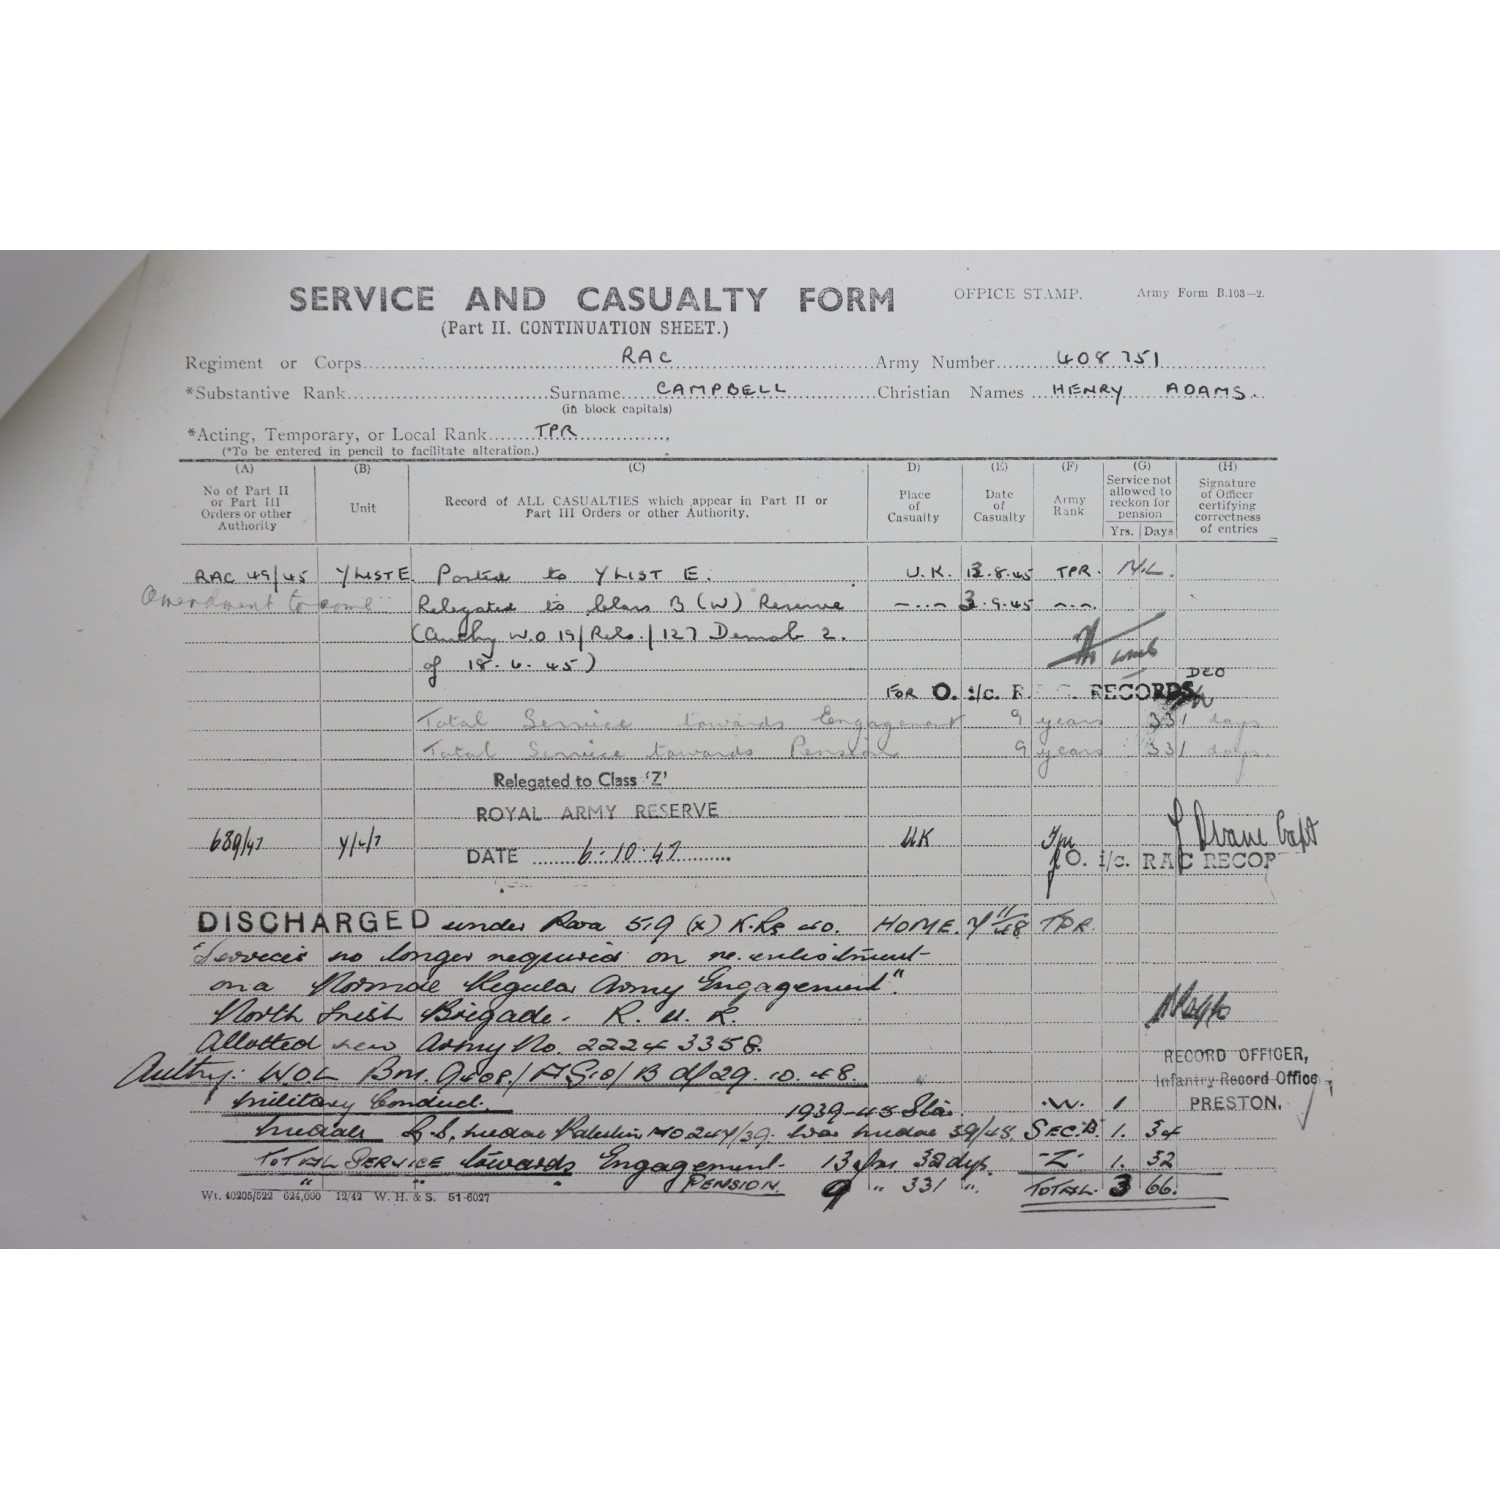 SERVICE AND CASUALTY FORM OFFICE STAMP. Army Form B.103—2.
(Part II. CONTINUATION SHEET.)
Regiment or Corps RAC Army Number 408751
*Substantive Rank Surname CAMPBELL Christian Names HENRY ADAMS.
(in block capitals)
*Acting, Temporary, or Local Rank TPR
(*To be entered in pencil to facilitate alteration.)
(A) (B) (C) D) (E) (F) (G) (H)
No of Part II or Part III Orders or other Authority
Unit
Record of ALL CASUALTIES which appear in Part II or Part III Orders or other Authority.
Place of Casualty
Date of Casualty
Army Rank
Service not allowed to reckon for pension
Yrs. Days
Signature of Officer certifying correctness of entries
RAC 49/45 Y LIST E Posted to Y LIST E. U.K. .8.45 TPR. NIL.
Amendment to Relegated to Class B (W) Reserve —..— 3.9.45 —.—.
(Authy W.O 19/Rels./127 Demob 2.
of 18.6.45)
FOR O. i/c. R. RECORDS
Total Service towards Engagement 9 years 331 days
Total Service towards Pension 9 years 331 days.
Relegated to Class 'Z'
ROYAL ARMY RESERVE
689/47 UK Tpr Capt
DATE 6.10.47
O. i/c. RAC RECOR
DISCHARGED under Para 519 (x) K.Rs 40. HOME. 11/48 TPR.
"Services no longer required on re.enlistment
on a Normal Regular Army Engagement".
North Irish Brigade. R. U. R.
Allotted new Army No. 22243358.
Authy: W.O.L Bm. 9408/AG10/B d/29.10.48.
RECORD OFFICER,
Infantry Record Office
PRESTON.
Military Conduct. 1939-45 Star. .W. 1
Medals G.S. Medal Palestine AO 247/39. War Medal 39/45. SEC.B. 1. 34
TOTAL SERVICE towards Engagement. 13 yrs 32 dys. "Z" 1. 32
" " PENSION. 9 " 331 ". TOTAL. 3 66.
Wt. 40205/522 624,000 12/42 W. H. & S. 51-6027